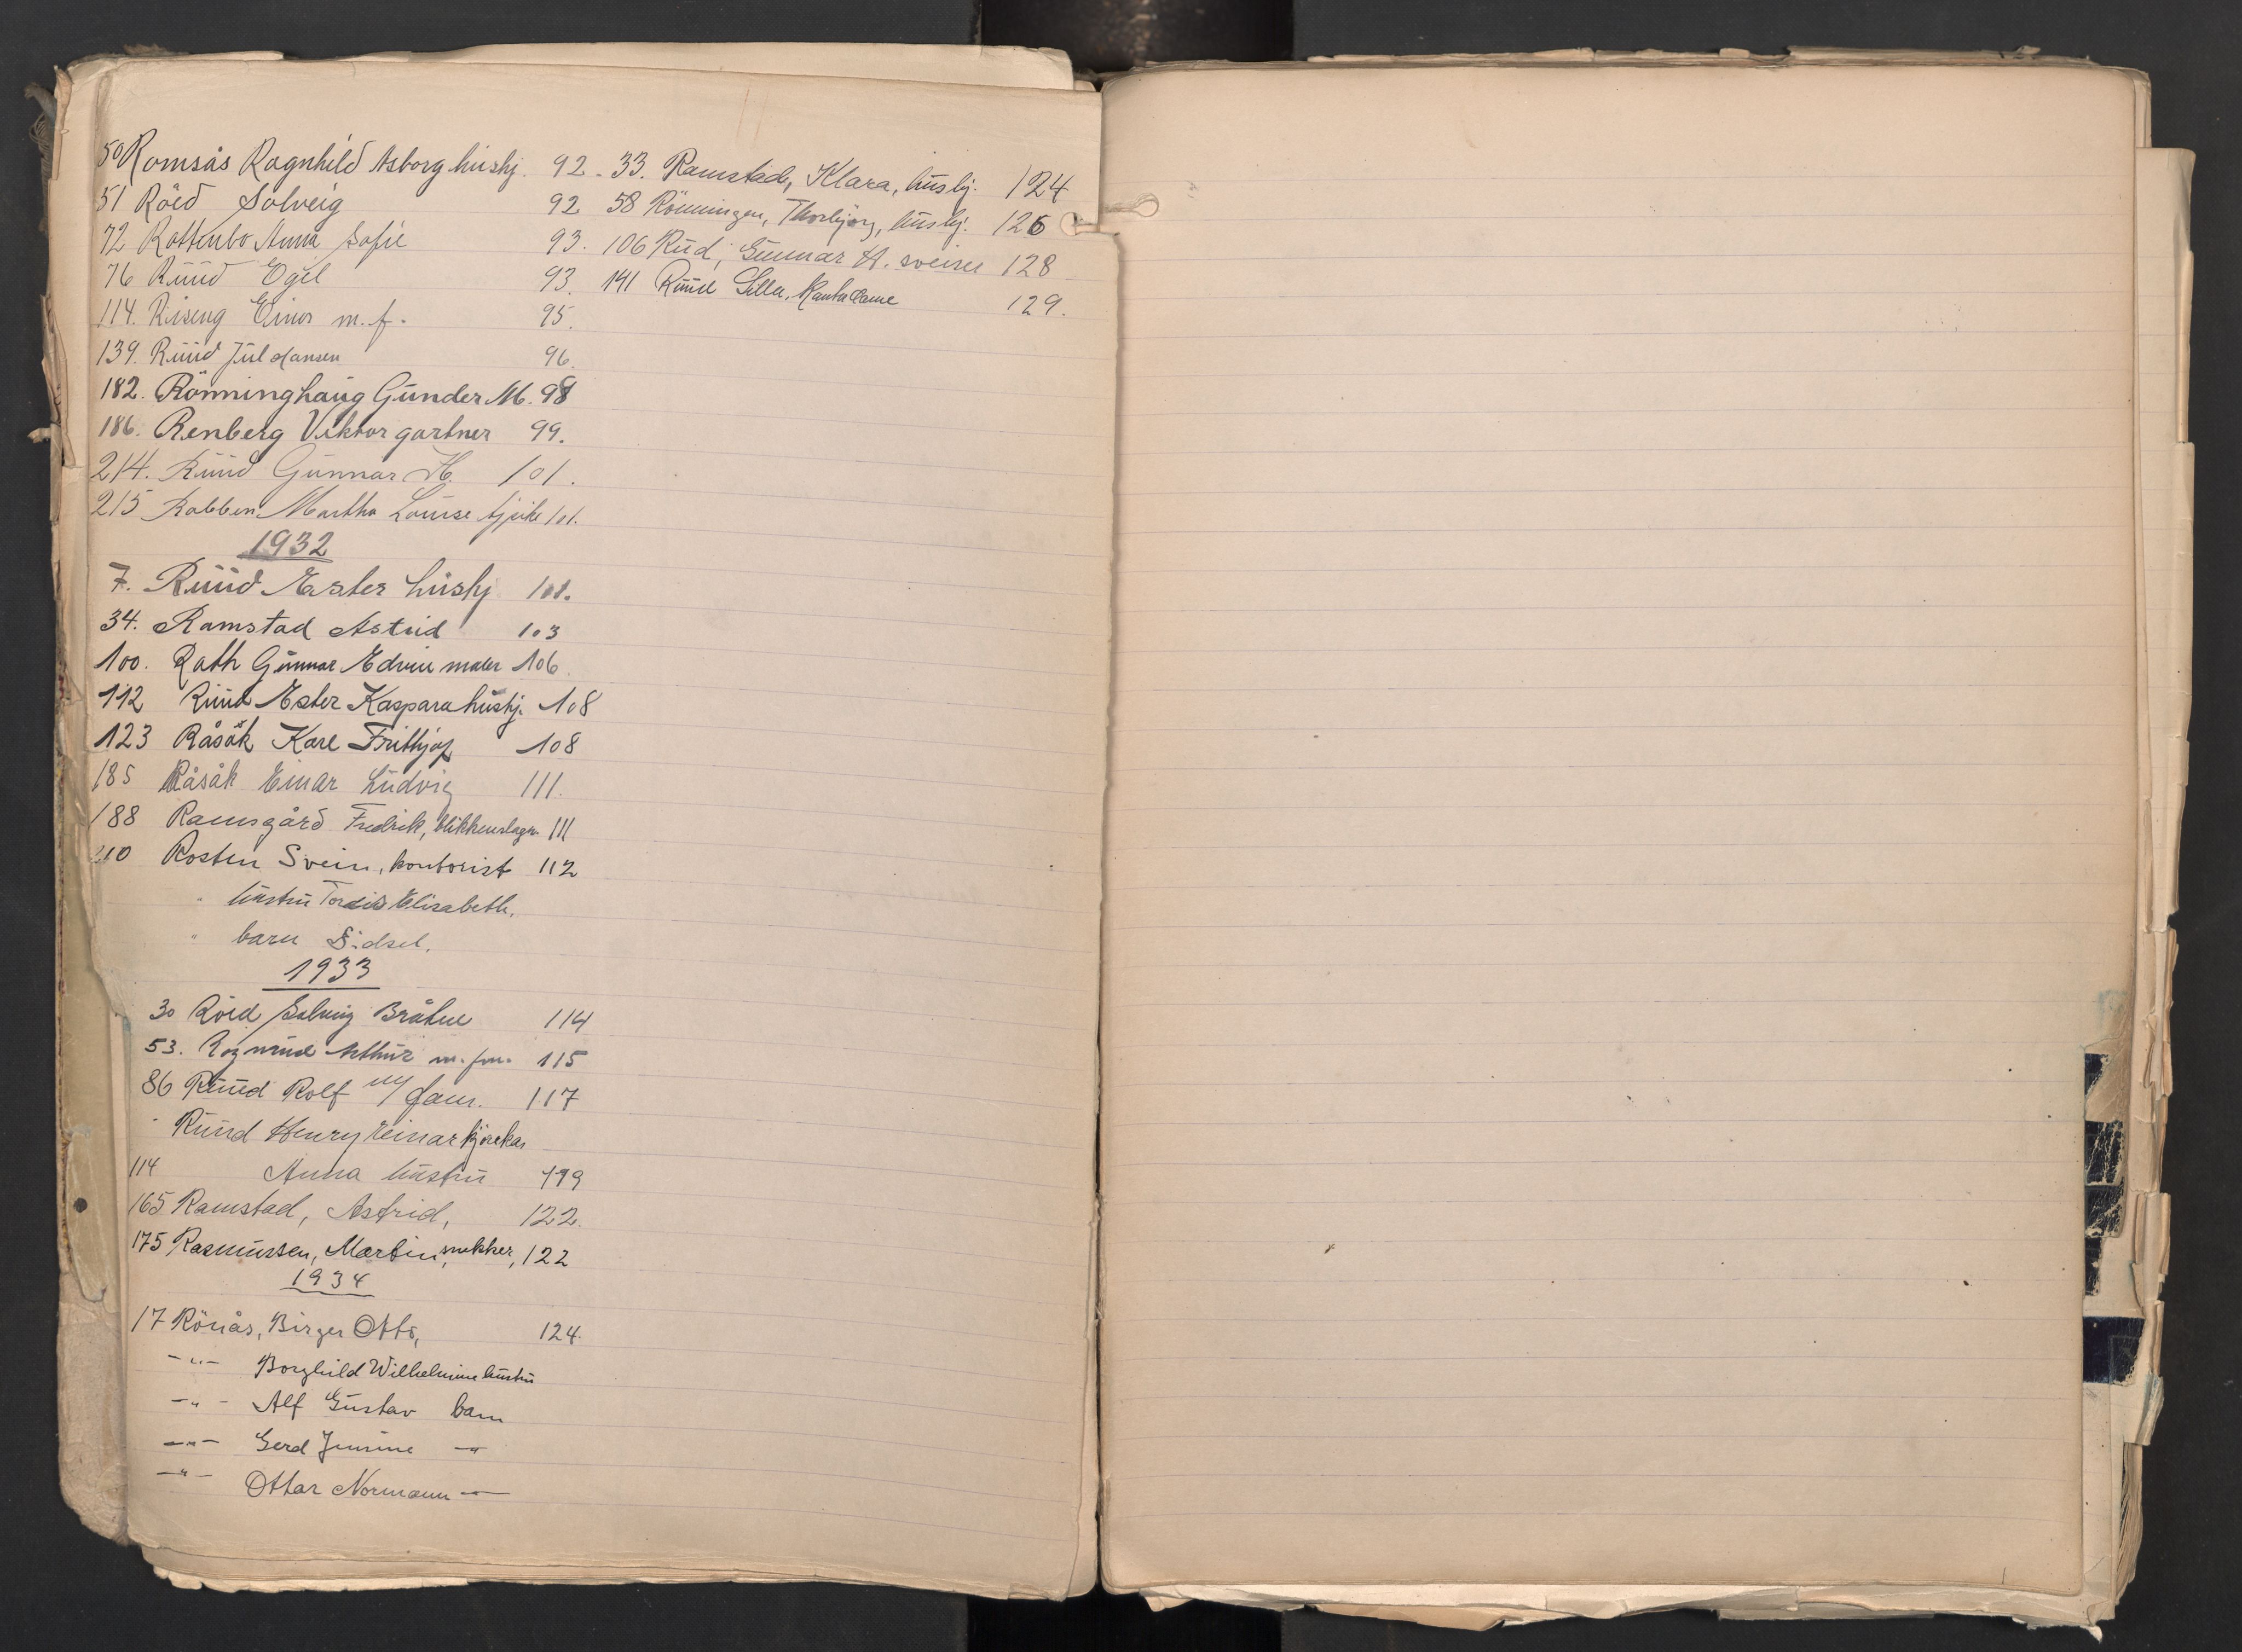 50 Romsås Ragnhild Asborg hushj. 92.
51 Röed Solveig 92
72 Rottenbo Anna Sofie 93.
76 Ruud Egil 93.
114. Riseng Einar m. f. 95.
139. Ruud Jul Hansen 96.
182. Rönninghaug Gunder M. 98
186. Renberg Viktor gartner 99.
214. Ruud Gunnar H. 101.
215 Rabben Martha Louise 101.
1932
7. Ruud Ester hushj 101.
34. Ramstad Astrid 103
100. Rath Gunnar Edvin maler 106.
112 Ruud Ester Kaspara hushj. 108
123 Råsåk Kare Frithjof 108
185 Råsåk Einar Ludvig 111.
188 Ramsgård Fredrik, blikkenslager 111
210 Rosten Svein, kontorist 112
" hustru Tordis Elisabeth.
" barn Sidsel.
1933
30 Röed Solveig Bråtne 114
53. Rognrud Arthur m. fam. 115
86 Ruud Rolf m/ fam. 117
Ruud Henry Reinar
114 Anna hustru 119
165 Ramstad, Astrid, 122.
175 Rasmussen, Martin, snekker, 122
1934
17 Rönås, Birger Otto, 124.
-"- Borghild Wilhelmine hustru
-"- Alf Gustav barn
-"- Gerd Jensine -"-
-"- Ottar Normann -"-
33. Ramstad, Klara, hushj. 124
58 Rönningen, Thorbjörg, hushj. 126
106 Rud, Gunnar H. sveiser 128
141 Ruud Lilla. 129.